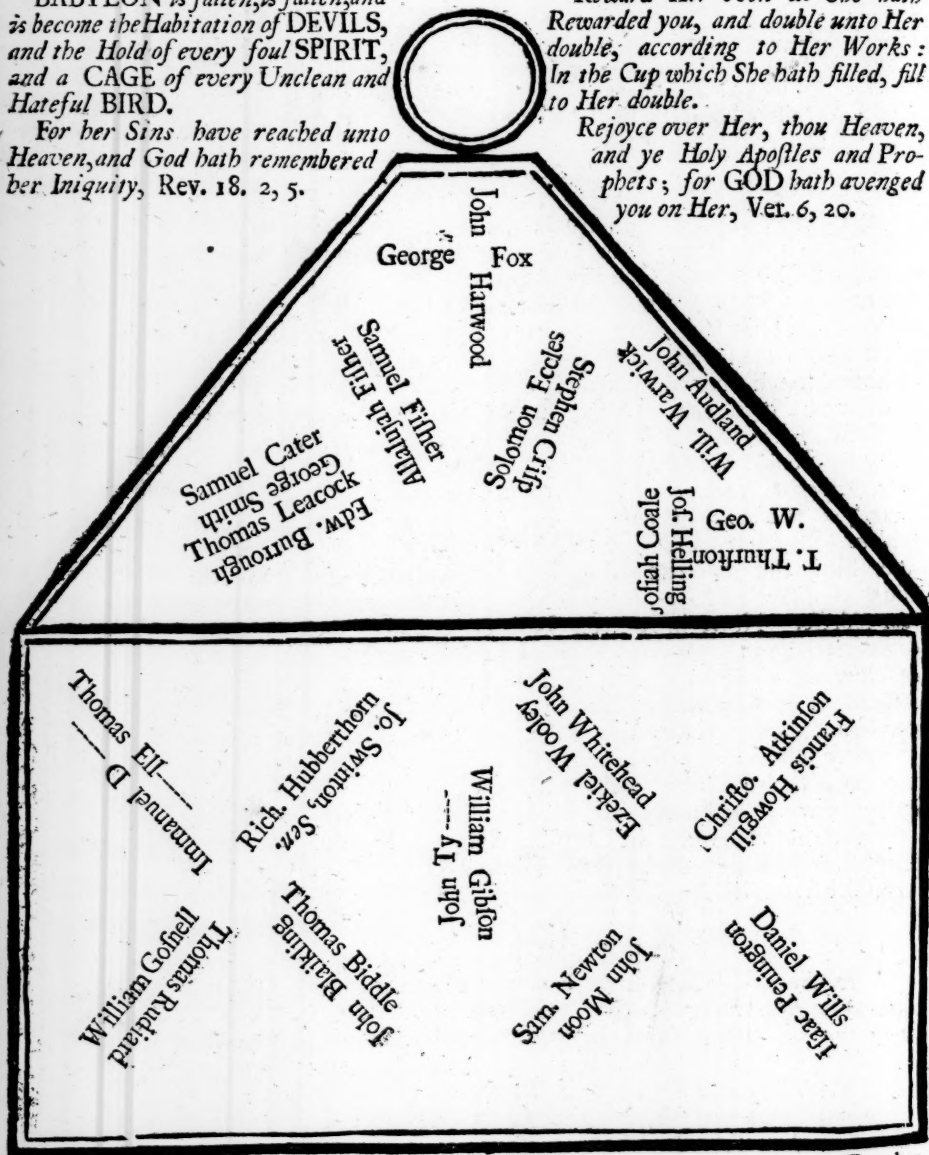 BABYLON is fallen, is fallen, and
is become the Habitation of DEVILS,
and the Hold of every foul SPIRIT,
and a CAGE of every Unclean and
Hateful BIRD.
For her Sins have reached unto
Heaven, and God hath remembered
her Iniquity, Rev. 18. 2, 5.
Rewarded you, and double unto Her
double, according to Her Works:
In the Cup which She hath filled, fill
to Her double.
Rejoyce over Her, thou Heaven,
and ye Holy Apoſtles and Pro-
phets; for GOD hath avenged
you on Her, Ver. 6, 20.
John Harwood
George Fox
Samuel Fiſher
Allalujah Fiſher
Solomon Eccles
Stephen Criſp
John Audland
Will. Warwick
Samuel Cater
George Smith
Thomas Leacock
Edw. Burrough
Joſiah Coale
Joſ. Helling
Geo. W.
T. Thurſton
Thomas Ell-----
-----Immanuel D
Rich. Hubberthorn
Jo. Swinton, Sen.
John Ty----
William Gibſon
John Whitehead
Ezekiel Wooley
Chriſto. Atkinſon
Francis Howgill
William Goſnell
Thomas Rudiard
Thomas Biddle
John Blaikling
Sam. Newton
John Moon
Daniel Wills
Iſaac Penington